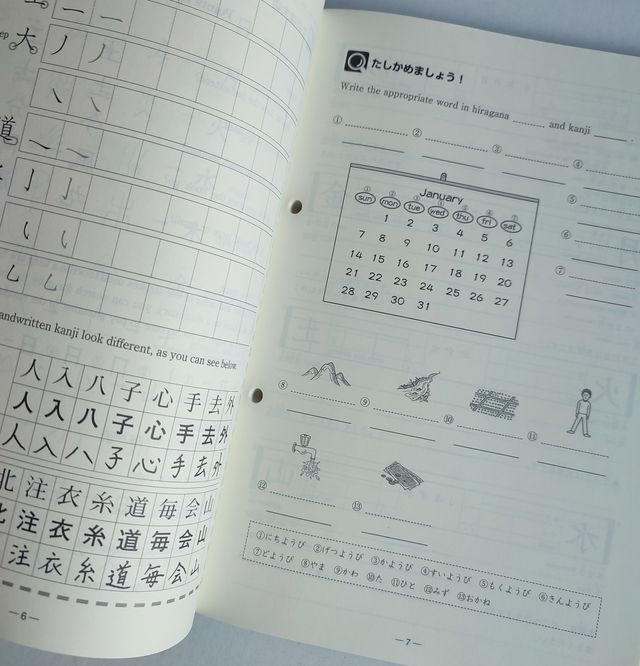 大
道
andwritten kanji look different, as you can see below.
人 入 八 子 心 手 去 外
人 入 八 子 心 手 去 外
人 入 八 子 心 手 去 外
北 注 衣 糸 道 毎 会 山
注 衣 糸 道 毎 会 山
注 衣 糸 道 毎 会 山
—6—
たしかめましょう！
Write the appropriate word in hiragana ______ and kanji ______ .
① ② ③ ④
⑤
⑥
⑦
January
① ② ③ ④ ⑤ ⑥ ⑦
sun mon tue wed thu fri sat
1 2 3 4 5 6
7 8 9 10 11 12 13
14 15 16 17 18 19 20
21 22 23 24 25 26 27
28 29 30 31
⑧ ⑨ ⑩ ⑪
⑫ ⑬
①にちようび ②げつようび ③かようび ④すいようび ⑤もくようび ⑥きんようび
⑦どようび ⑧やま ⑨かわ ⑩た ⑪ひと ⑫みず ⑬おかね
—7—